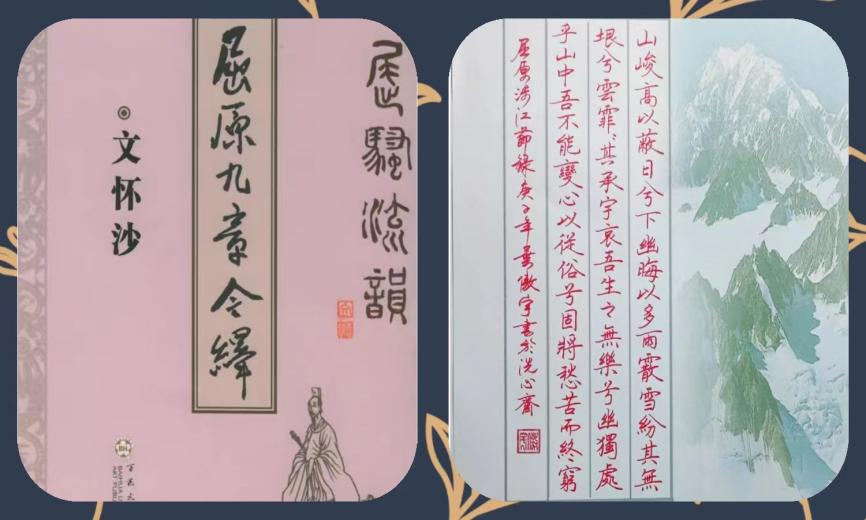 屈騷流韻
屈原九章今繹
文怀沙
百花文
BAIHUA LI
ART PUBL
山峻高以蔽日兮下幽晦以多雨霰雪紛其無
垠兮雲霏〻其承宇哀吾生之無樂兮幽獨處
乎山中吾不能變心以從俗兮固將愁苦而終窮
屈原涉江節錄庚子年傲宇書於洗心齋